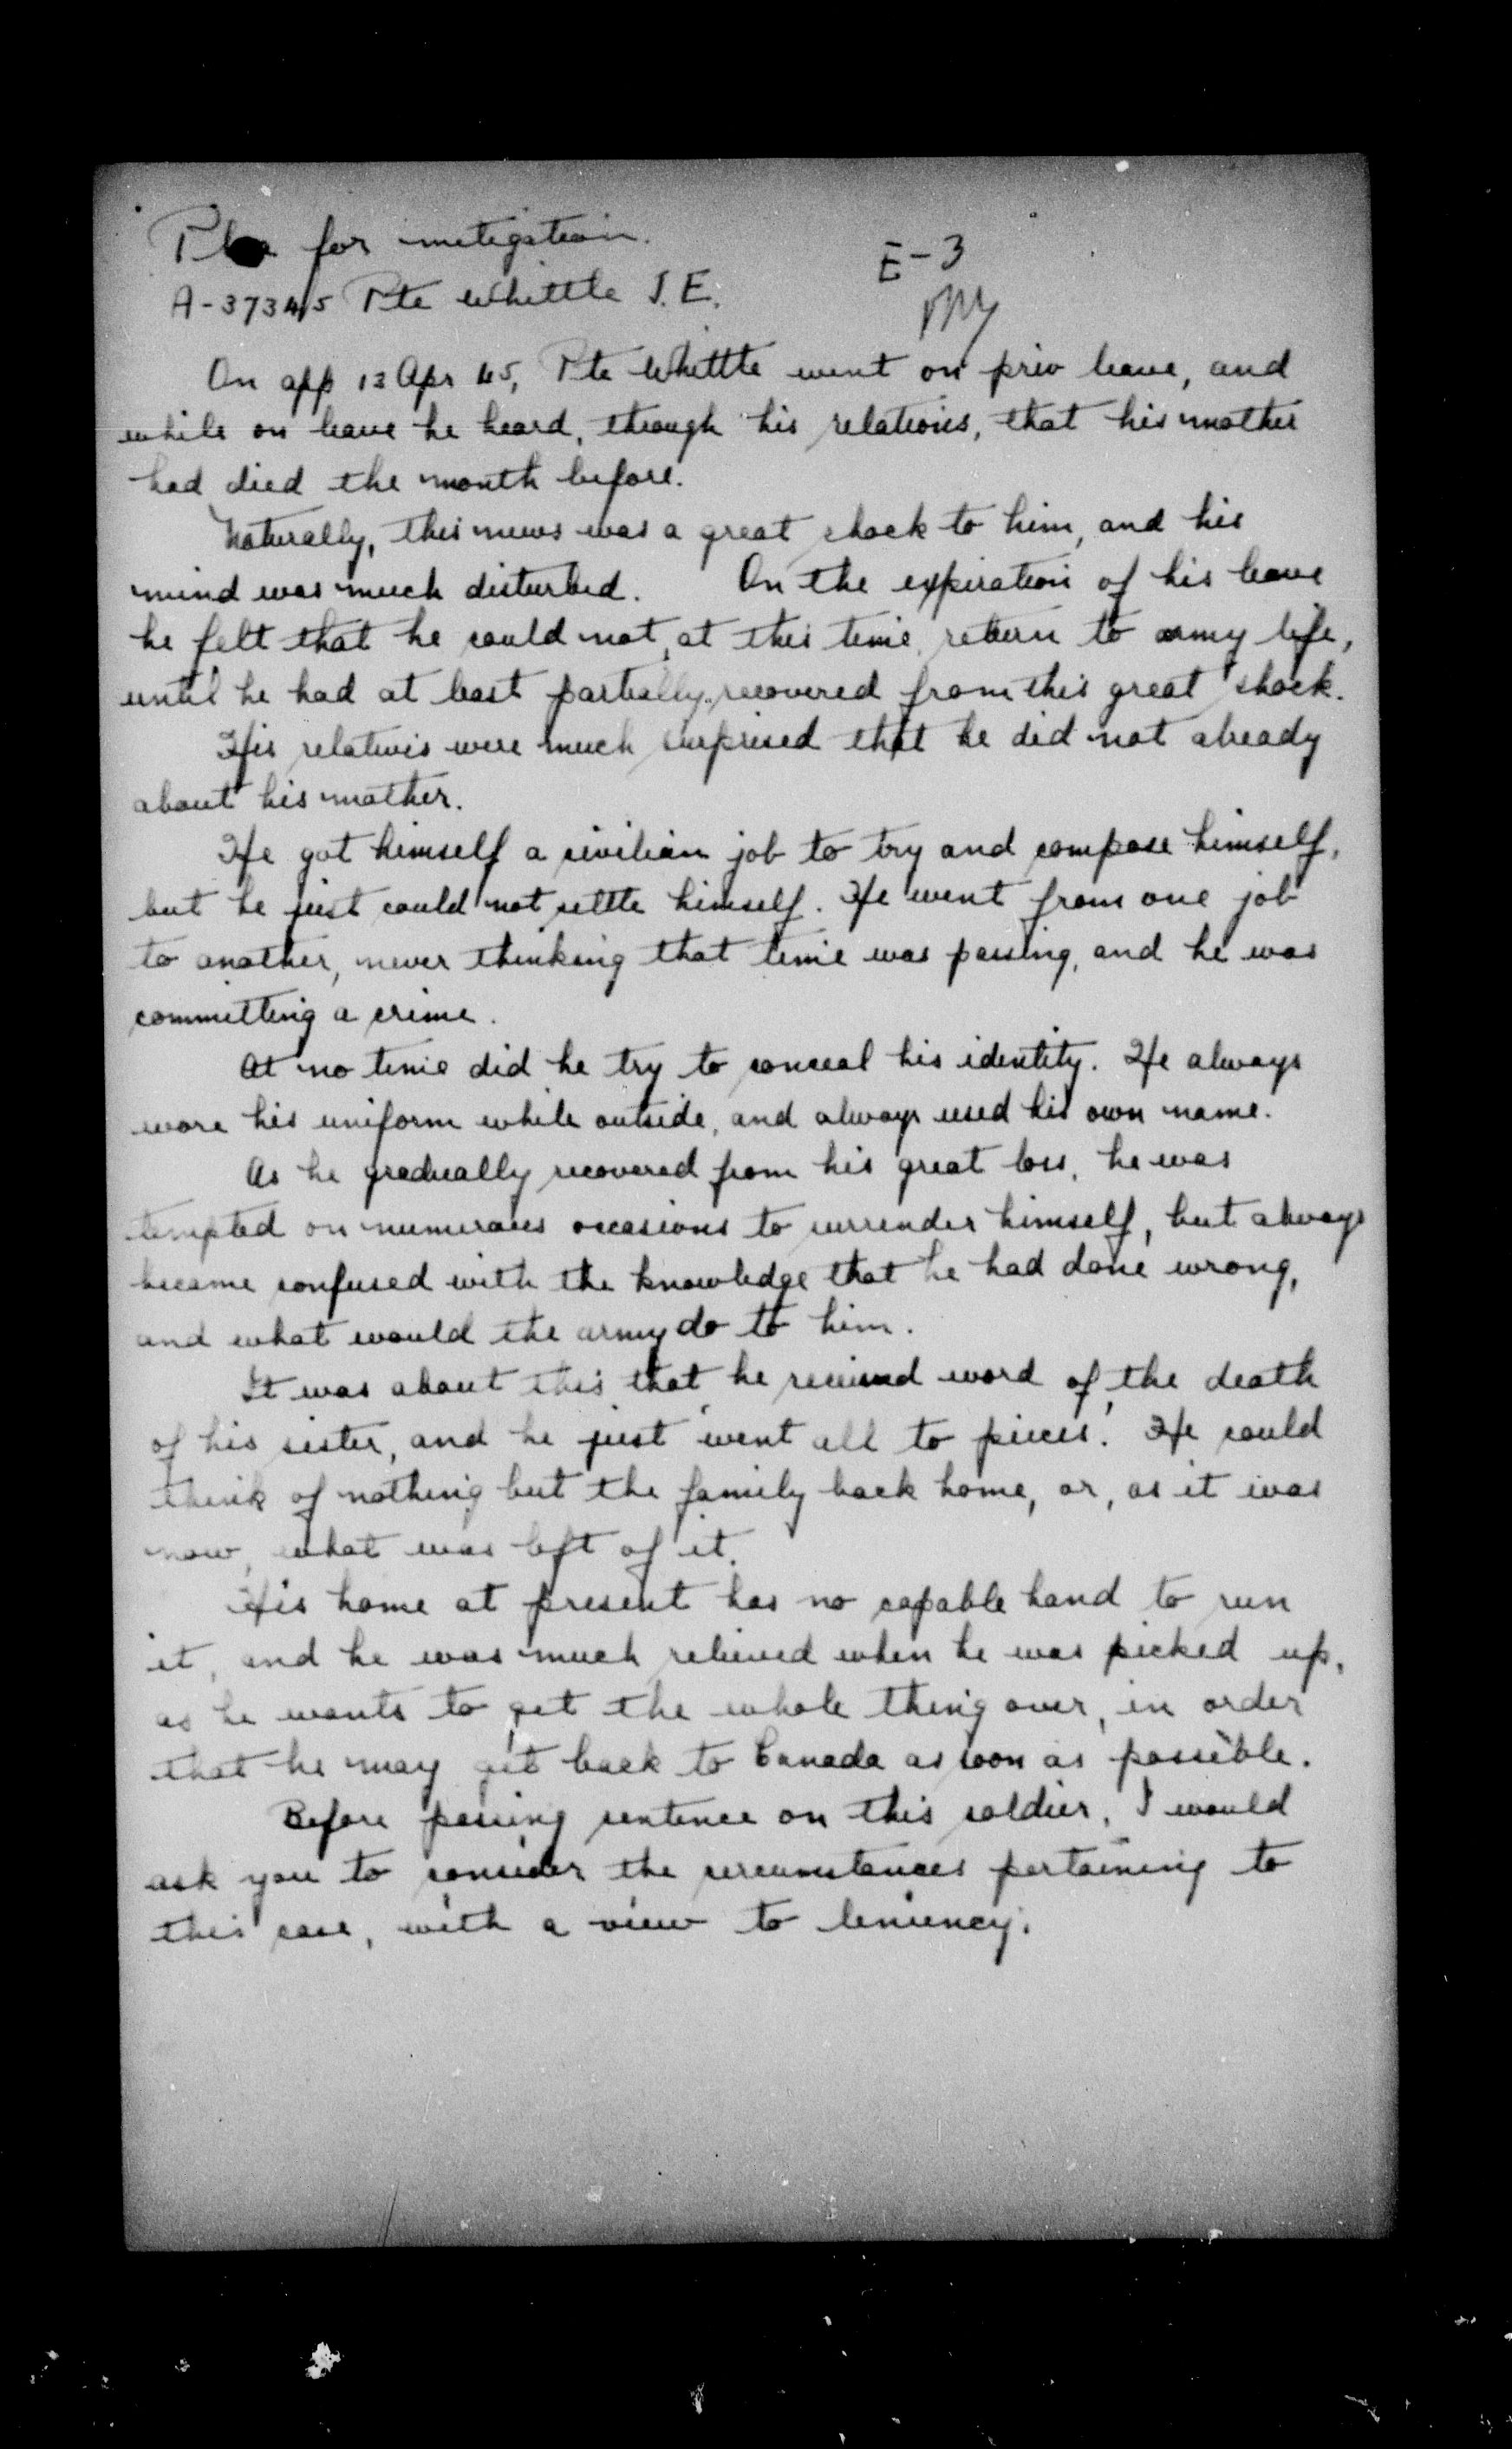 Plea for mitigation.
E-3
A-37345 Pte Whittle J.E.
On app 13 Apr 45, Pte Whittle went on priv leave, and
while on leave he heard, through his relations, that his mother
had died the month before.
Naturally, this news was a great shock to him, and his
mind was much disturbed. On the expiration of his leave
he felt that he could not, at this time, return to army life,
until he had at least partially recovered from this great shock.
His relatives were much surprised that he did not already
about his mother.
He got himself a civilian job to try and compose himself,
but he just could not settle himself. He went from one job
to another, never thinking that time was passing, and he was
committing a crime.
At no time did he try to conceal his identity. He always
wore his uniform while outside, and always used his own name.
As he gradually recovered from his great loss, he was
tempted on numerous occasions to surrender himself, but always
became confused with the knowledge that he had done wrong,
and what would the army do to him.
It was about this that he received word of the death
of his sister, and he just went all to pieces. He could
think of nothing but the family back home, or, as it was
now, what was left of it.
His home at present has no capable hand to run
it, and he was much relieved when he was picked up,
as he wants to get the whole thing over, in order
that he may get back to Canada as soon as possible.
Before passing sentence on this soldier, I would
ask you to consider the circumstances pertaining to
this case, with a view to leniency.